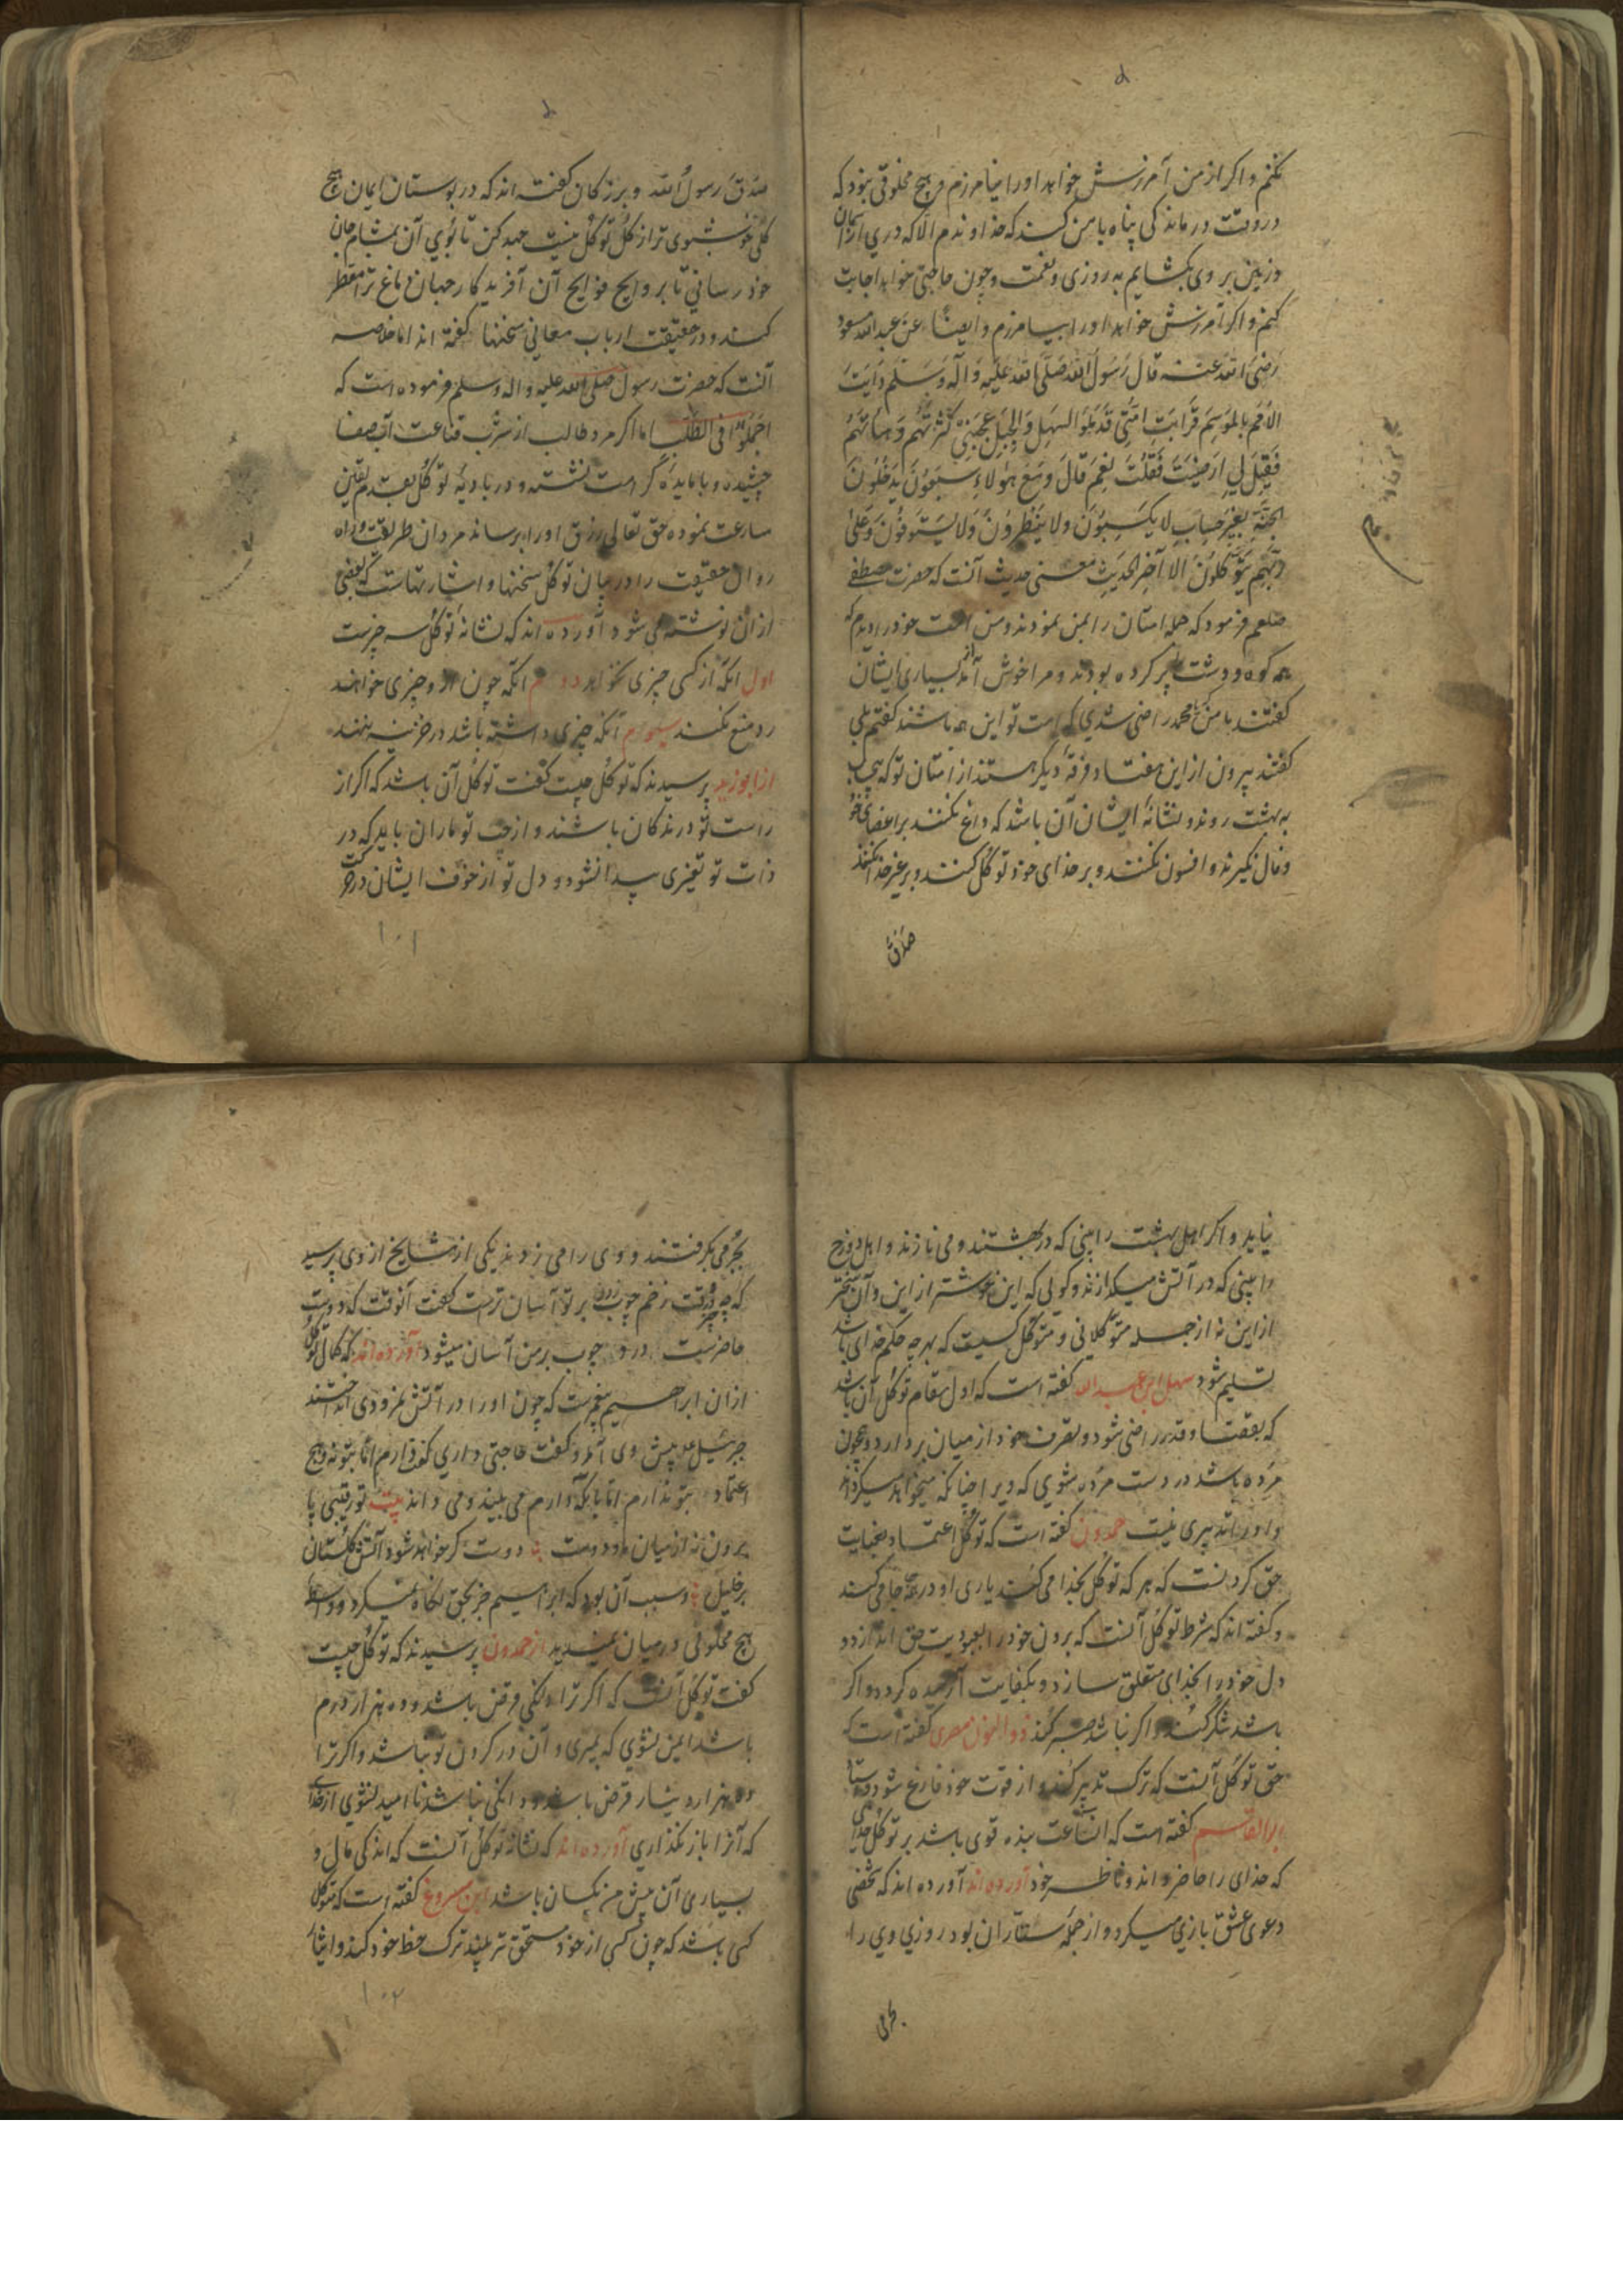 نکنم و اکر از من آمرزش خواهد او را نیامرزم و هیچ مخلوقی نبود که
در وقت درماندکی پناه با من کند که خداوندم الا که درهای آسمان
و زمین بر وی بکشایم به روزی و نعمت و چون حاجتی خواهد اجابت
کنم و اکر آمرزش خواهد او را بیامرزم و ایضا عن عبدالله مسعود
رَضِیَ الله عنه قالَ رَسُولُ الله صَلَّی الله عَلَیهِ وَآلِه وَسَلَّم رَاَیتُ
الاُمَم بِالمَوسِم فَرَایتُ اُمَّتی قَد مَلَؤ السَهلَ وَالجَبَل فَاعجَبَنی کَثرَتُهُم وَهَیأتُهُم
فَقیلَ لی اَرَضیتَ فَقُلتُ نَعَم قالَ وَمَع هٰؤلاءِ سَبعُونَ یَدخُلُونَ
الجَنَّة بِغَیرِ حِسابٍ لا یَکتَوُونَ ولا یَتَطَیَّرونَ وَلا یَستَرقُونَ وَعَلی
رَبِّهِم یَتَوَکَّلُونَ الا آخِر الحَدیث معنی حدیث آنست که حضرت مصطفی
صلعم فرمود که جمله امتان را بمن نمودند و من امت خود را دیدم که
همه کوه و دشت پر کرده بودند و مرا خوش آمد از بسیاری ایشان
کفتند با من که محمد راضی شدی که امت تو این همه باشند کفتم بلی
کفتند بیرون از این هفتاد فرقه دیکر هستند از امتان تو که بی حساب
به بهشت روند و نشانه ایشان آن باشد که داغ نکنند بر اعضای خود
و فال نکیرند و افسون نکنند و بر خدای خود توکل کنند و بر غیر خدا نکنند
صَدَقَ
صَدَقَ رَسولُ الله و بزرکان کفته اند که در بوستان ایمان هیچ
کلی خوشبوی تر از کل توکل نیست جهد کن تا بوی آن بمشام جان
خود رسانی تا بروایح فوایح آن آفریدکار جهان دماغ ترا معطر
کند و در حقیقت ارباب معانی سخنها کفته اند اما خلاصه
آنست که حضرت رسول صلی الله علیه واله وسلم فرموده است که
اَجمِلُوا فی الطَّلَب اما اکر مرد طالب از شرب قناعت آب صفا
چشیده و با مایده کرامت نشسته و در بادیه توکل بقدم یقین
مسارعت نموده حق تعالی رزق او را برساند مردان طریقت و راه
روان حقیقت را در بیان توکل سخنها و اشارتهاست که بعضی
از آن نوشته می شود آورده اند که نشانه توکل سه چیزست
اول آنکه از کسی چیزی نخواهد دوم آنکه چون از و چیزی خواهند
رد و منع نکند سیوم آنکه چیزی داشته باشد در خزینه ننهد
از ابوزید پرسیدند که توکل چیست کفت توکل آن باشد که اکر از
راست تو درندکان باشند و از چپ تو ماران باید که در
ذات تو تغیری پیدا نشود و دل تو از خوف ایشان در حرکت
۱۰۱
نیاید و اکر اهل بهشت را بینی که در بهشتند و می نازند و اهل دوزخ
را بینی که در آتش میکدازند و کوئی که این خوشتر از این و آن سختر
از این نه از جمله متوکلانی و متوکل کسیست که بهر چه حکم خدای باشد
تسلیم شود سهل ابن عبدالله کفته است که اول مقام توکل آن باشد
که بقضا و قدر راضی شود و تصرف خود از میان بردارد و چون
مرده باشد در دست مرده شوی که ویرا چنانکه میخواهد میکرداند
و او را تدبیری نیست حمدون کفته است که توکل اعتماد بعنایت
حق کردنست که هر که توکل بخدا می کند یاری او در همه جا می کند
و کفته اند که شرط توکل آنست که برون خود را بعبودیت حق اندازد و
دل خود را بخدای متعلق سازد و بکفایت آرمیده کردد و اکر
باشد شکر کند و اکر نباشد صبر کند ذوالنون مصری کفته است که
حق توکل آنست که ترک تدبیر کند و از قوت خود فارغ شود
ابوالقاسم کفته است که استطاعت بنده قوی باشد بر توکل خدای
که خدای را حاضر داند و ناظر خود آورده اند آورده اند که شخصی
دعوی عشق بازی میکرد و از جمله ستاران بود روزی وی را
بجرمی
بجرمی بکرفتند و وی را می زدند یکی از مشایخ از وی پرسید
که چه وقت زخم چوب بر تو آسان ترست کفت آنوقت که دوست
حاضرست درد چوب بر من آسان میشود آورده اند که کمال توکل
از آن ابراهیم پیغمبرست که چون او را در آتش نمرودی انداختند
جبرئیل علیه پیش وی آمد و کفت حاجتی داری کفت دارم اما بتو نه و هیچ
اعتماد بتو ندارم اما بآنکه دارم می بیند و می داند بیت تو رقیبی پا
برون نه از میان ما و دوست تا دوست کر خواهد شود آتش کلستان
بر خلیل و سبب آن بود که ابراهیم جز بحق نکاه نمیکرد و واسطه
هیچ مخلوقی در میان نمیدید از حمدون پرسیدند که توکل چیست
کفت توکل آنست که اکر ترا دانکی قرض باشد و ده هزار درم
باشد ایمن نشوی که بمیری و آن در کردن تو بباشد و اکر ترا
ده هزار دینار قرض باشد و دانکی نباشد ناامید نشوی از خدای
که آنرا باز نکذاری آورده اند که نشانه توکل آنست که اندکی مال و
بسیاری آن پیش من یکسان باشد ابن مسروق کفته است که متوکل
کسی باشد که چون کسی از خود مستحق تر بیند ترک حظ خود کند و ایثار
۱۰۲